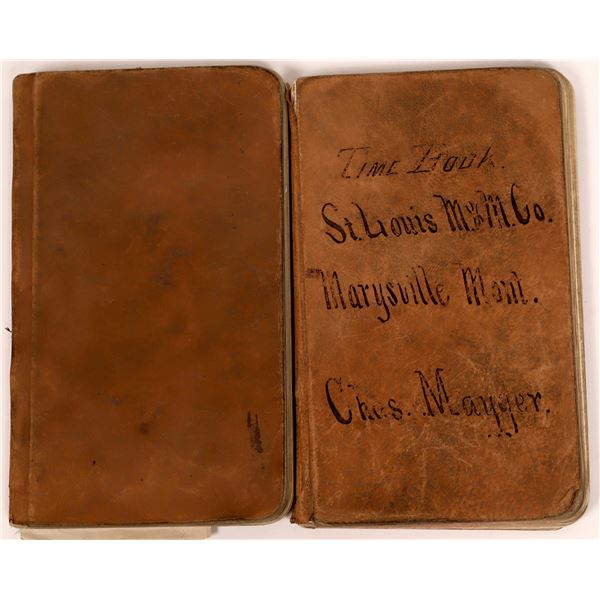 TIME BOOK.
St. Louis M. & M. Co.
Marysville Mont.
Chas. Mayger.